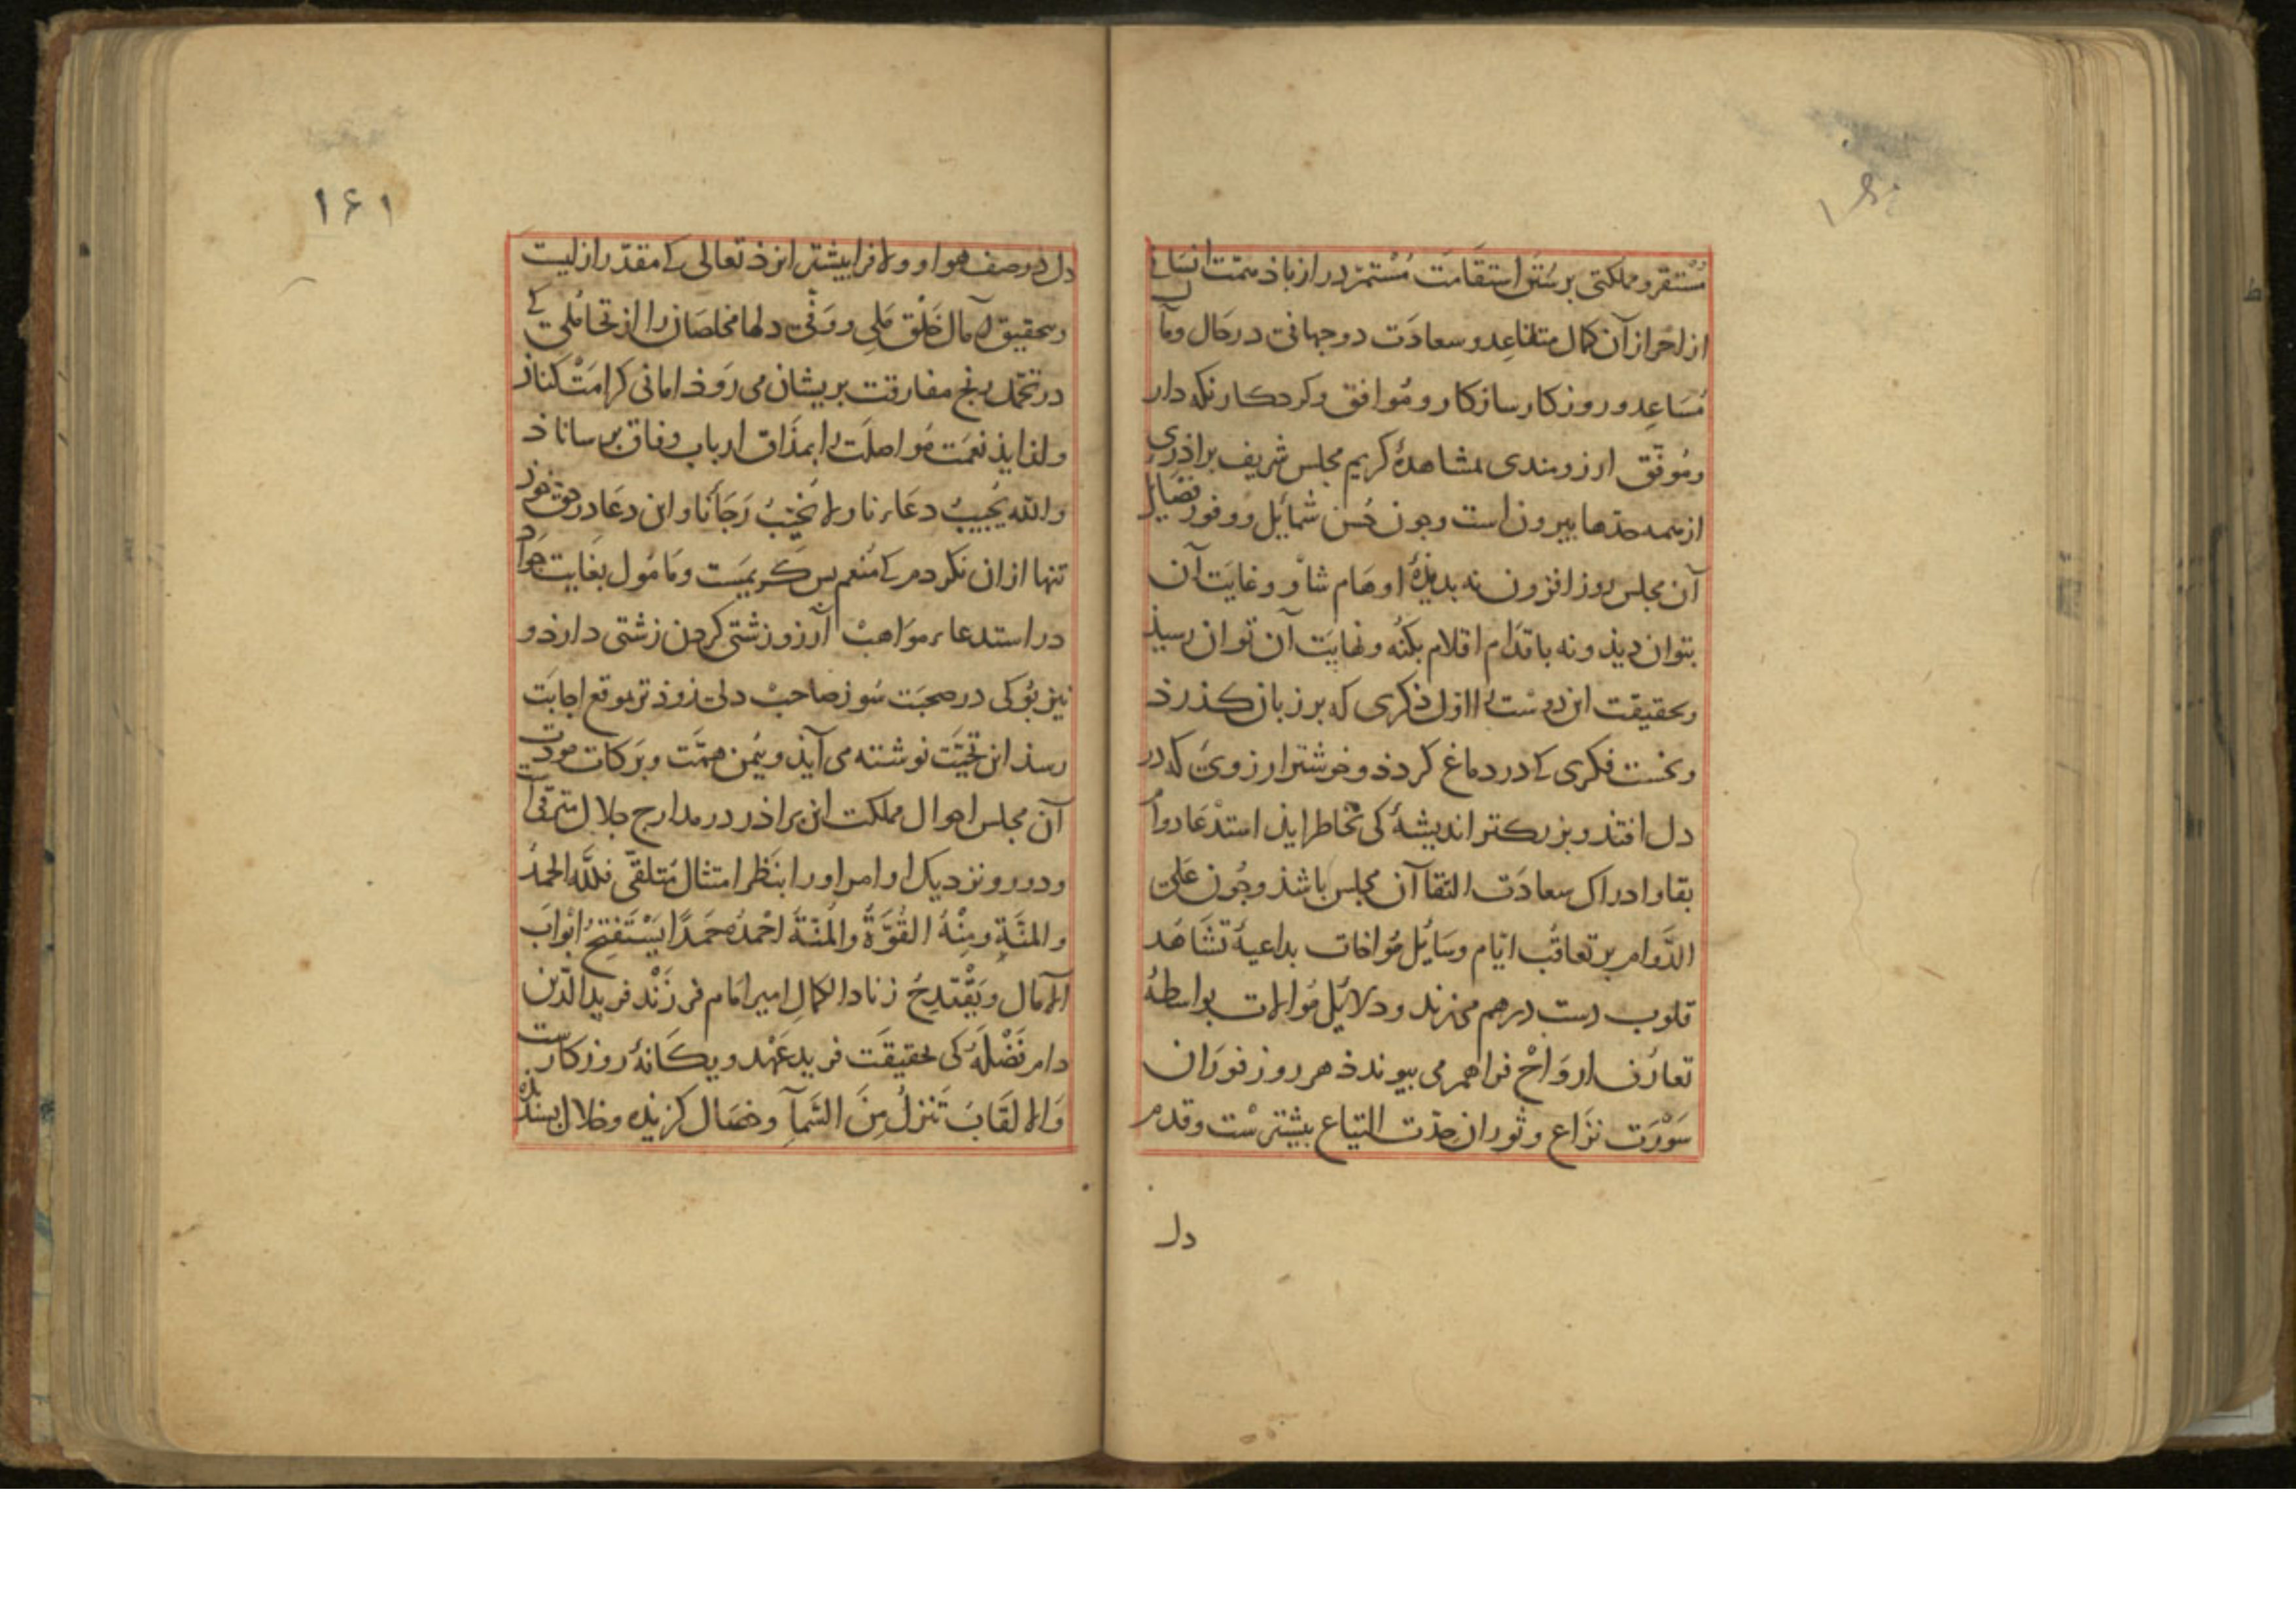 مُسْتقر و مملکتی بر سُنَن استقامَت مُسْتمرّ در ازباذ همّت انسانی
از احراز آن کمال متقاعِد و سعادَت دو جهانی در حَال و مآل
مُسَاعِد و روزکار سازکار و مُوافق و کردکار نکه دار
و مُوفّق ارزومندی بمشاهدهٔ کریم مجلس شریف براذری
از همه حدّها بیرون است و جون حُسن شمائل و وفور فضایل
آن مجلس روز افزون نه بدیذهٔ اوهَام شأو و غایَت آن
بتوان دیذ و نه باقدَام اقلام بکُنْه و نهایَت آن توان رسیذ
و بحقیقت این دوست را اول ذکری که بر زبان کذرذ
و نخست فکری که در دماغ کردذ و خوشتر ارزویی که در
دل افتذ و بزرکتر اندیشهٔ کی بخاطر ایذ استدْعَا دوام
بقا و ادراک سعادَت التقا آن مجلس باشذ و جُون عَلَی
الدَّوام بر تعاقُب ایّام وسَایُل مُوافات بداعیهٔ تشَاهُد
قلوب دست درهم می‌زند و دلائِل مُوالات بواسطهٔ
تعارُف اروَاحْ فراهم می بیوندذ هر روز فوَرَان
سَوْرَت نزَاع و ثوران حدّت التیاع بیشترسْت و قدم
دل
۱۶۱
دل در صف هوا و ولا فرا بیشتر ایزذ تعالی که مقدّر ازلیت
و بحقیق آمال خَلْق مَلِی و وَفی دلها مخلصان را از تحامُلی که
در تحمّل رنج مفارقت بریشان می رَوَذ امانی کرامَتْ کناذ
و لذایذ نعمَت مُواصلَت را بمذَاق ارباب وفاق برساناذ
والله یُجیبُ دعَاءنا ولا یُخیّبُ رَجَأنا و این دعَا در حق خوذ
تنها ازان نکردم که مُنعم بس کریمَست و مَامُول بغایت جوَاد
در استدعاء موَاهبْ آرزو زشتی کردن زشتی دارذ و
نیز بُو کی در صحبَت سُوز صاحبْ دلی زوذتر بموقع اجابَت
رسذ این تحیّت نوشته می آیذ و یُمن همّت و برَکات مودّت
آن مجلس احوال مملکت این براذر در مدارج جلال مترقی
و دور و نزدیک اوامر او را بنَظر امتثال مُتلقّی فللّه الحَمدُ
والمنَّةِ ومِنْهُ القُوَّةُ والمُنّةُ احْمدُهُ حَمَدًا یَسْتَفتِحُ ابْوابَ
الآمال ویَقْتدِحُ زناد الکمالِ امیر امَام فرزَنْد فرید الدّین
دام فَضْلهُ کی بحقیقَت فرید عَهْد و یکَانهٔ روزکارست
وَالالقَابَ تَنزلُ مِنَ السَّمآءِ و خصَال کزیذه و خلال بسندیذه